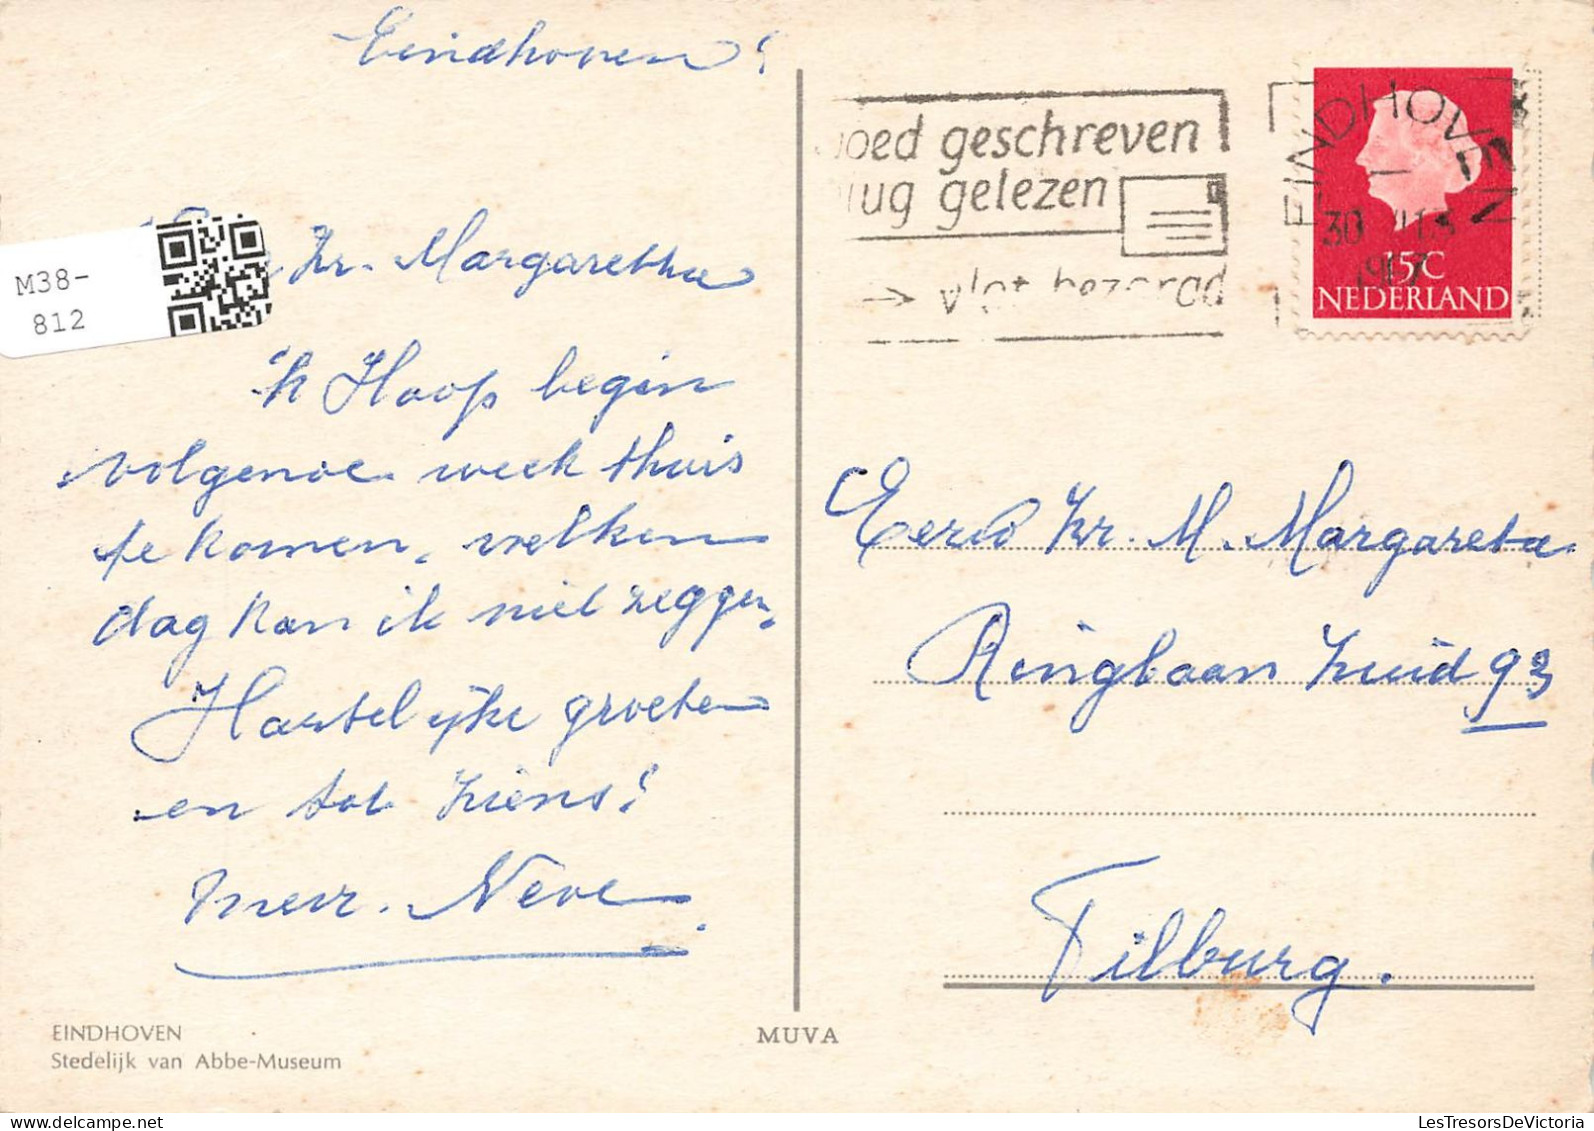 Eindhoven!
Zr. Margaretha
'k Hoop begin
volgende week thuis
te komen, welken
dag kan ik niet zeggen,
Hartelijke groeten
en tot ziens!
Neve
EINDHOVEN
Stedelijk van Abbe-Museum
MUVA
oed geschreven
lug gelezen
→ vlot bezorgd
EINDHOVEN
30
15C
NEDERLAND
Eerw Zr. M. Margareta
Ringbaan Zuid 93
Tilburg.
M38-
812
LesTresorsDeVictoria
www.delcampe.net